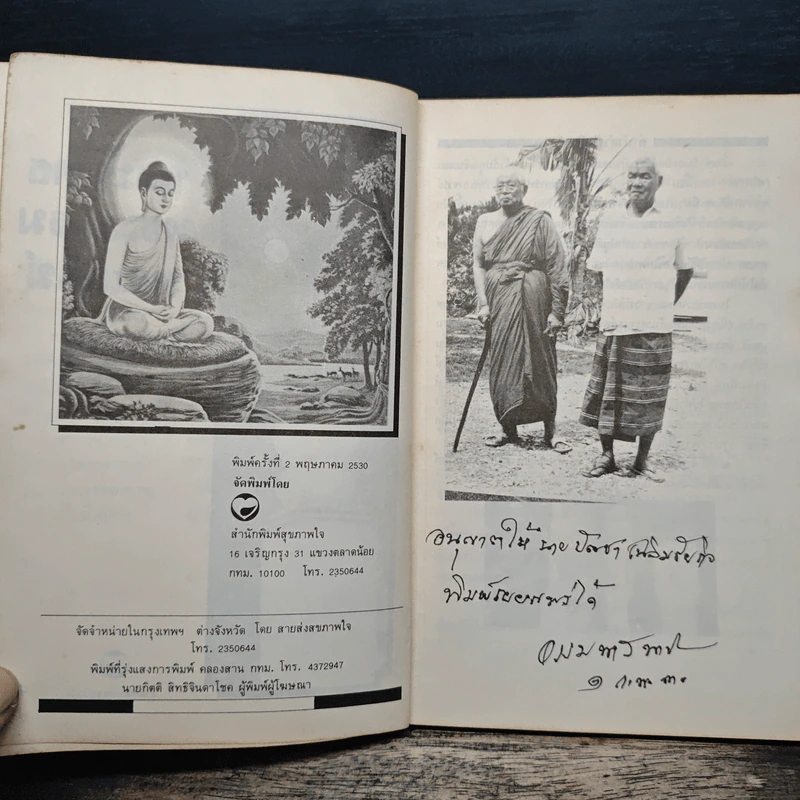 พิมพ์ครั้งที่ 2 พฤษภาคม 2530
จัดพิมพ์โดย
สำนักพิมพ์สุขภาพใจ
16 เจริญกรุง 31 แขวงตลาดน้อย
กทม. 10100 โทร. 2350644
จัดจำหน่ายในกรุงเทพฯ ต่างจังหวัด โดย สายส่งสุขภาพใจ
โทร. 2350644
พิมพ์ที่รุ่งแสงการพิมพ์ คลองสาน กทม. โทร. 4372947
นายกิตติ สิทธิจินดาโชค ผู้พิมพ์ผู้โฆษณา
อนุญาตให้ นาย บัญชา เฉลิมชัยกิจ
พิมพ์เผยแพร่ได้